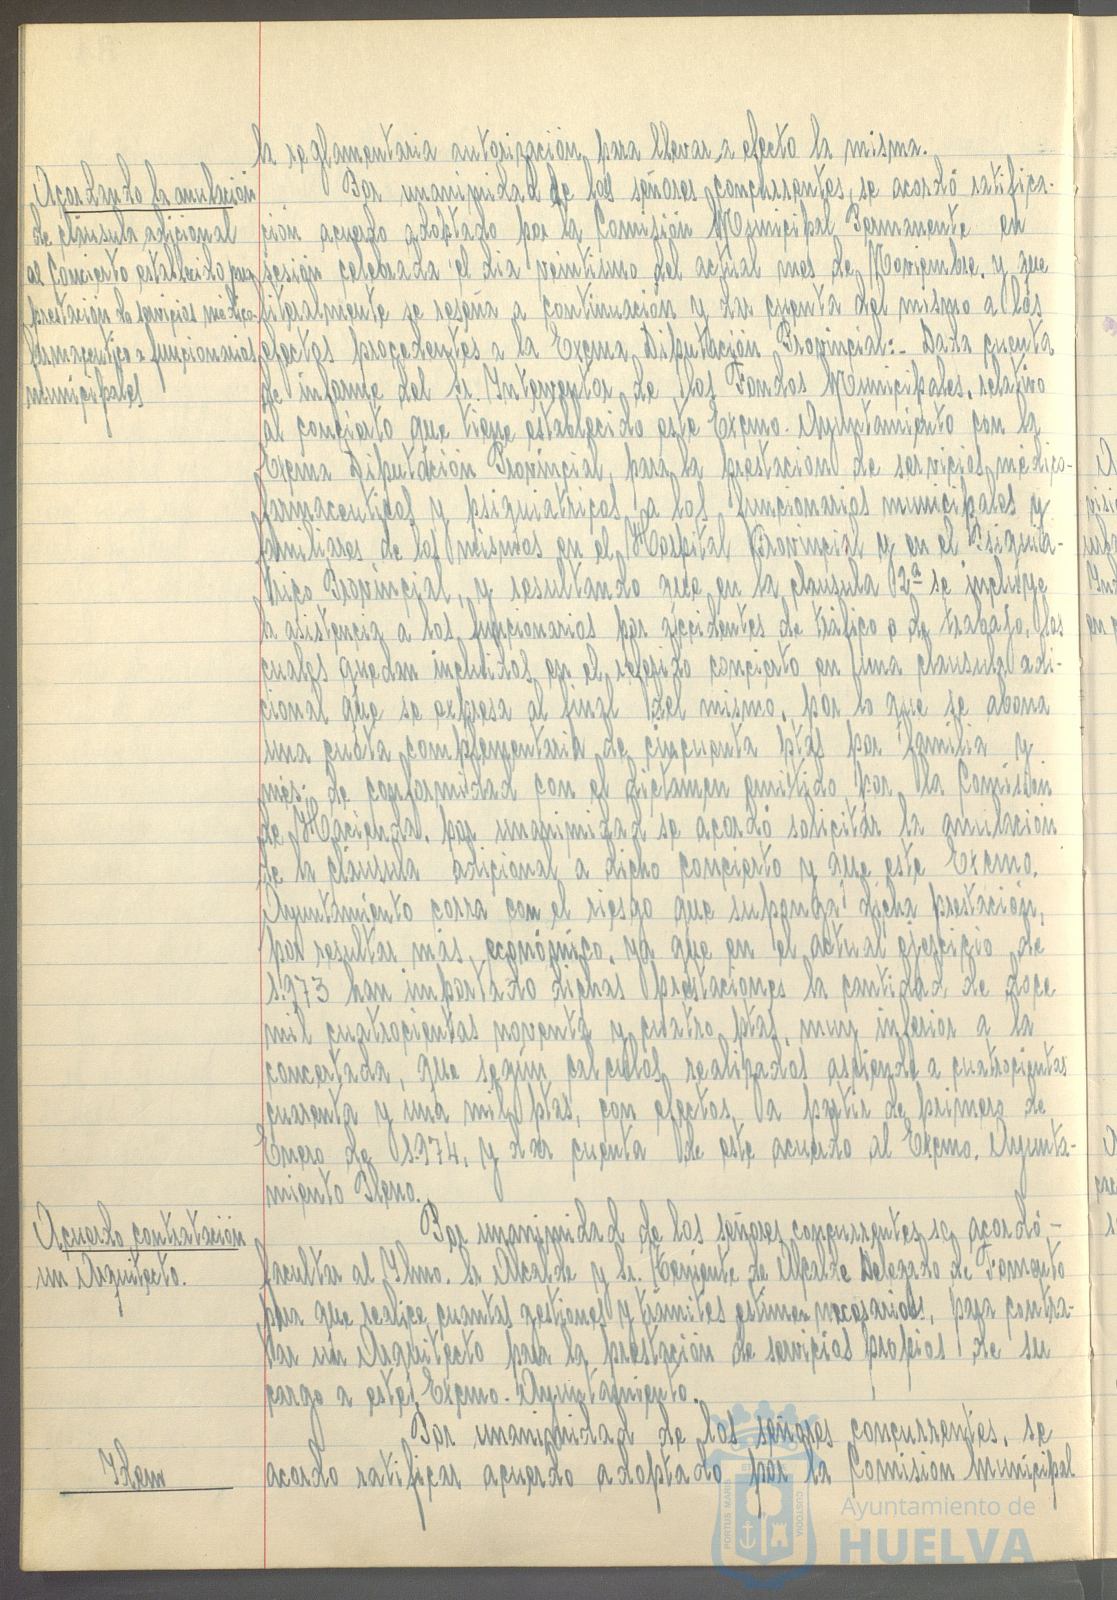 la reglamentaria autorización para llevar a efecto la misma.
Acordando la anulación
de cláusula adicional
al Concierto establecido para
prestación de servicios médico-
farmacéutico a funcionarios
municipales
Por unanimidad de los señores concurrentes, se acordó ratifica-
ción acuerdo adoptado por la Comisión Municipal Permanente en
sesión celebrada el día veintiuno del actual mes de Noviembre, y que
literalmente se reseña a continuación y dar cuenta del mismo a los
efectos procedentes a la Excma. Diputación Provincial:- Dada cuenta
de informe del Sr. Interventor de los Fondos Municipales, relativo
al concierto que tiene establecido este Excmo. Ayuntamiento con la
Excma Diputación Provincial, para la prestación de servicios médico-
farmaceuticos y psiquiatricos a los funcionarios municipales y
familiares de los mismos en el Hospital Provincial y en el Psiquiá-
trico Provincial, y resultando que en la clausula 12ª se incluye
la asistencia a los funcionarios por accidentes de tráfico o de trabajo, los
cuales quedan incluidos en el referido concierto en una clausula adi-
cional que se expresa al final del mismo, por lo que se abona
una cuota complementaria de cincuenta ptas por familia y
mes; de conformidad con el dictamen emitido por la Comisión
de Hacienda, por unanimidad se acordó solicitar la anulación
de la cláusula adicional a dicho concierto y que este Excmo.
Ayuntamiento corra con el riesgo que suponga dicha prestación,
por resultar más económico, ya que en el actual ejercicio de
1.973 han importado dichas prestaciones la cantidad de doce
mil cuatrocientas noventa y cuatro ptas, muy inferior a la
concertada, que según calculos realizados asciende a cuatrocientas
cuarenta y una mil ptas, con efectos a partir de primero de
Enero de 1.974, y dar cuenta de este acuerdo al Excmo. Ayunta-
miento Pleno.
Acuerdo contratación
un Arquitecto.
Por unanimidad de los señores concurrentes se acordó -
facultar al Ilmo. Sr Alcalde y Sr. Teniente de Alcalde Delegado de Fomento
para que realice cuantas gestiones y trámites estimen necesarios, para contra-
tar un Arquitecto para la prestación de servicios propios de su
cargo a este Excmo. Ayuntamiento.
Idem
Por unanimidad de los señores concurrentes, se
acordo ratificar acuerdo adoptado por la Comision Municipal
PORTUS MARIS
CUSTODIA
Ayuntamiento de
HUELVA